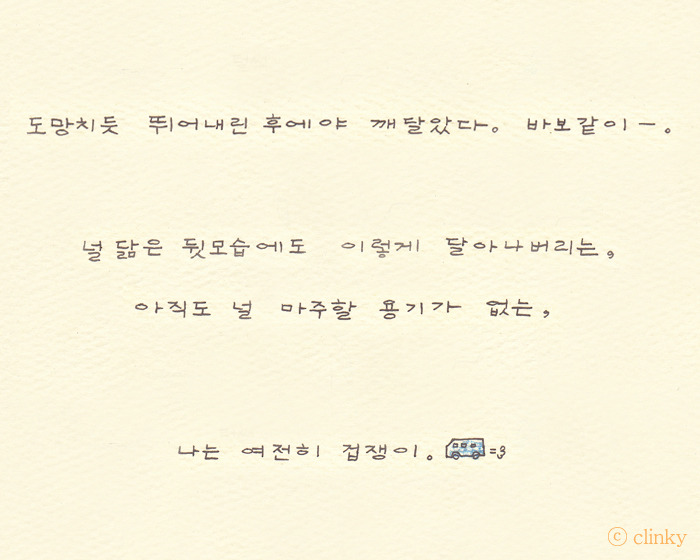 도망치듯 뛰어내린 후에야 깨달았다. 바보같이ㅡ.
널 닮은 뒷모습에도 이렇게 달아나버리는,
아직도 널 마주할 용기가 없는,
나는 여전히 겁쟁이. =3
ⓒ clinky